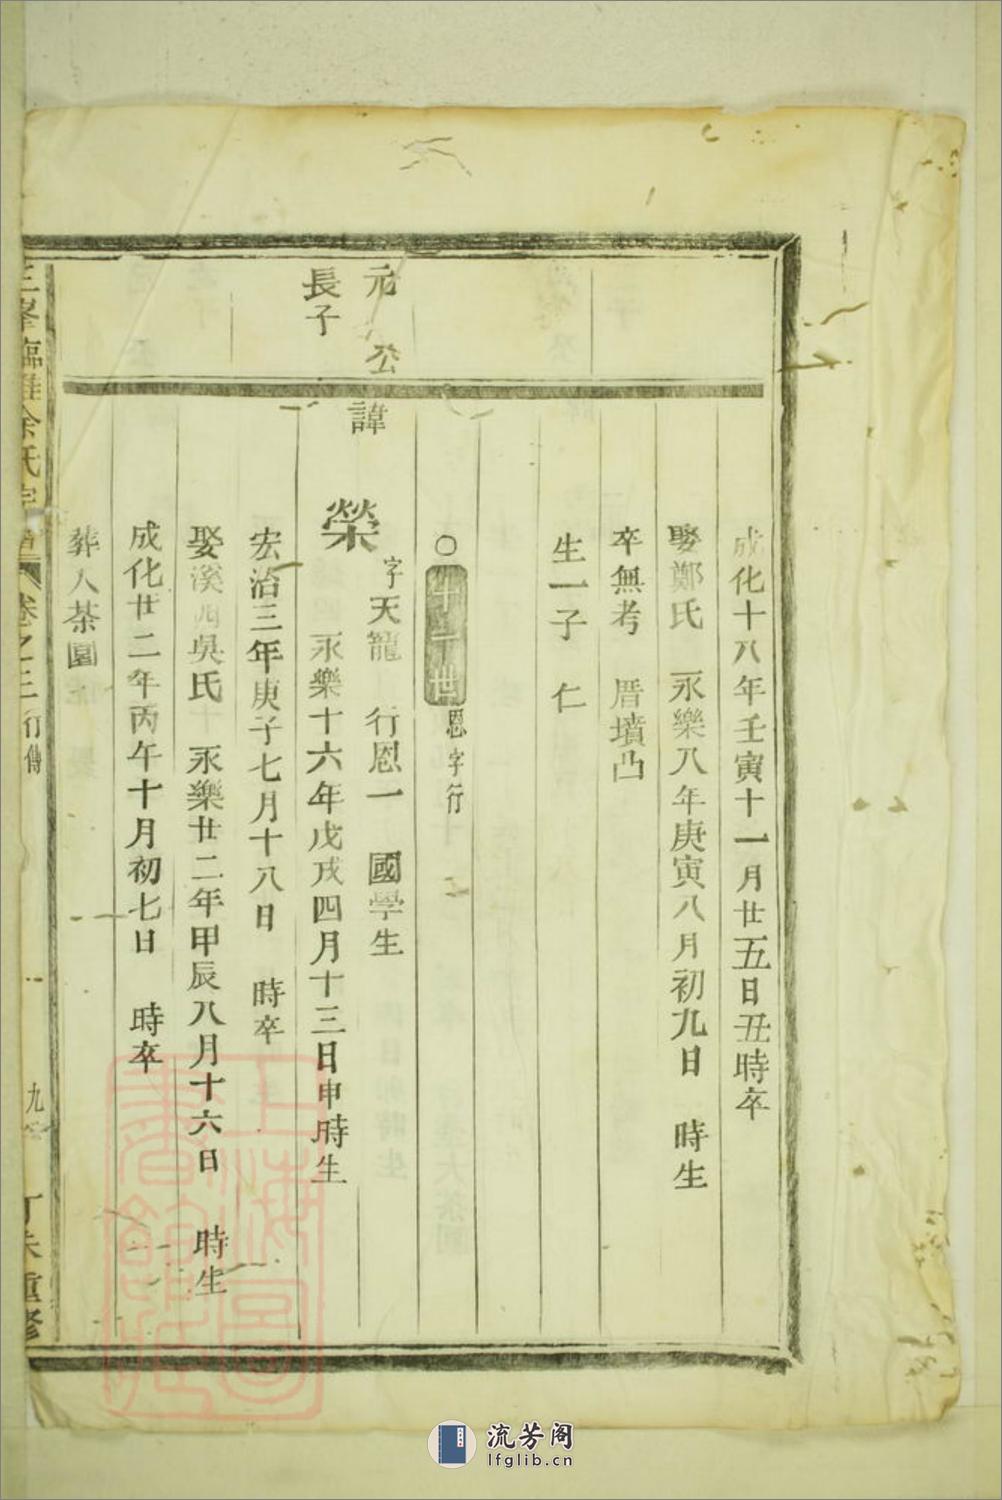 成化十八年壬寅十一月廿五日丑時卒
娶鄭氏　永樂八年庚寅八月初九日　時生
卒無考　厝墳凸
生一子　仁
○　世　恩字行
元公
長子
諱
榮
字天龍　行恩一　國學生
永樂十六年戊戌四月十三日申時生
宏治三年庚子七月十八日　時卒
娶溪 吳氏　永樂廿二年甲辰八月十六日　時生
成化廿二年丙午十月初七日　時卒
葬人茶園
余氏宗譜　卷之三　行傳　九　丁未重修
上海圖書館藏
流芳阁
lfglib.cn